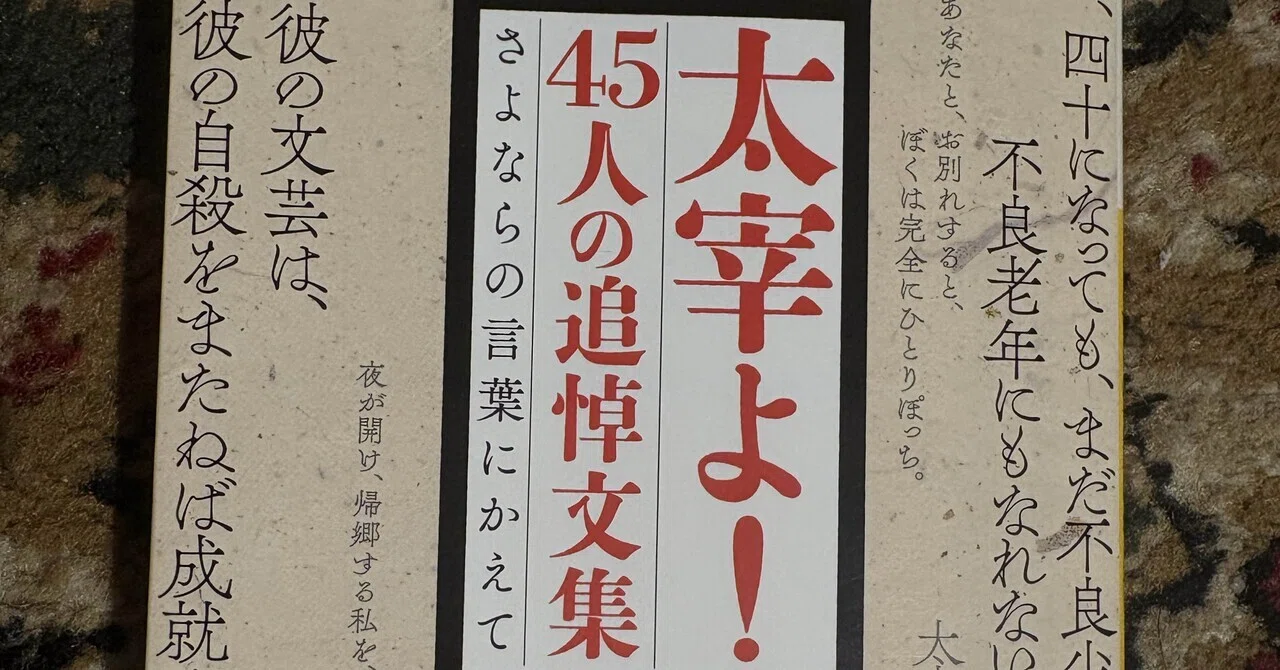 、四十になっても、まだ不良少
不良老年にもなれない
あなたと、お別れすると、
ぼくは完全にひとりぽっち。
太宰よ！
45人の追悼文集
さよならの言葉にかえて
夜が開け、帰郷する私を、
彼の文芸は、
彼の自殺をまたねば成就